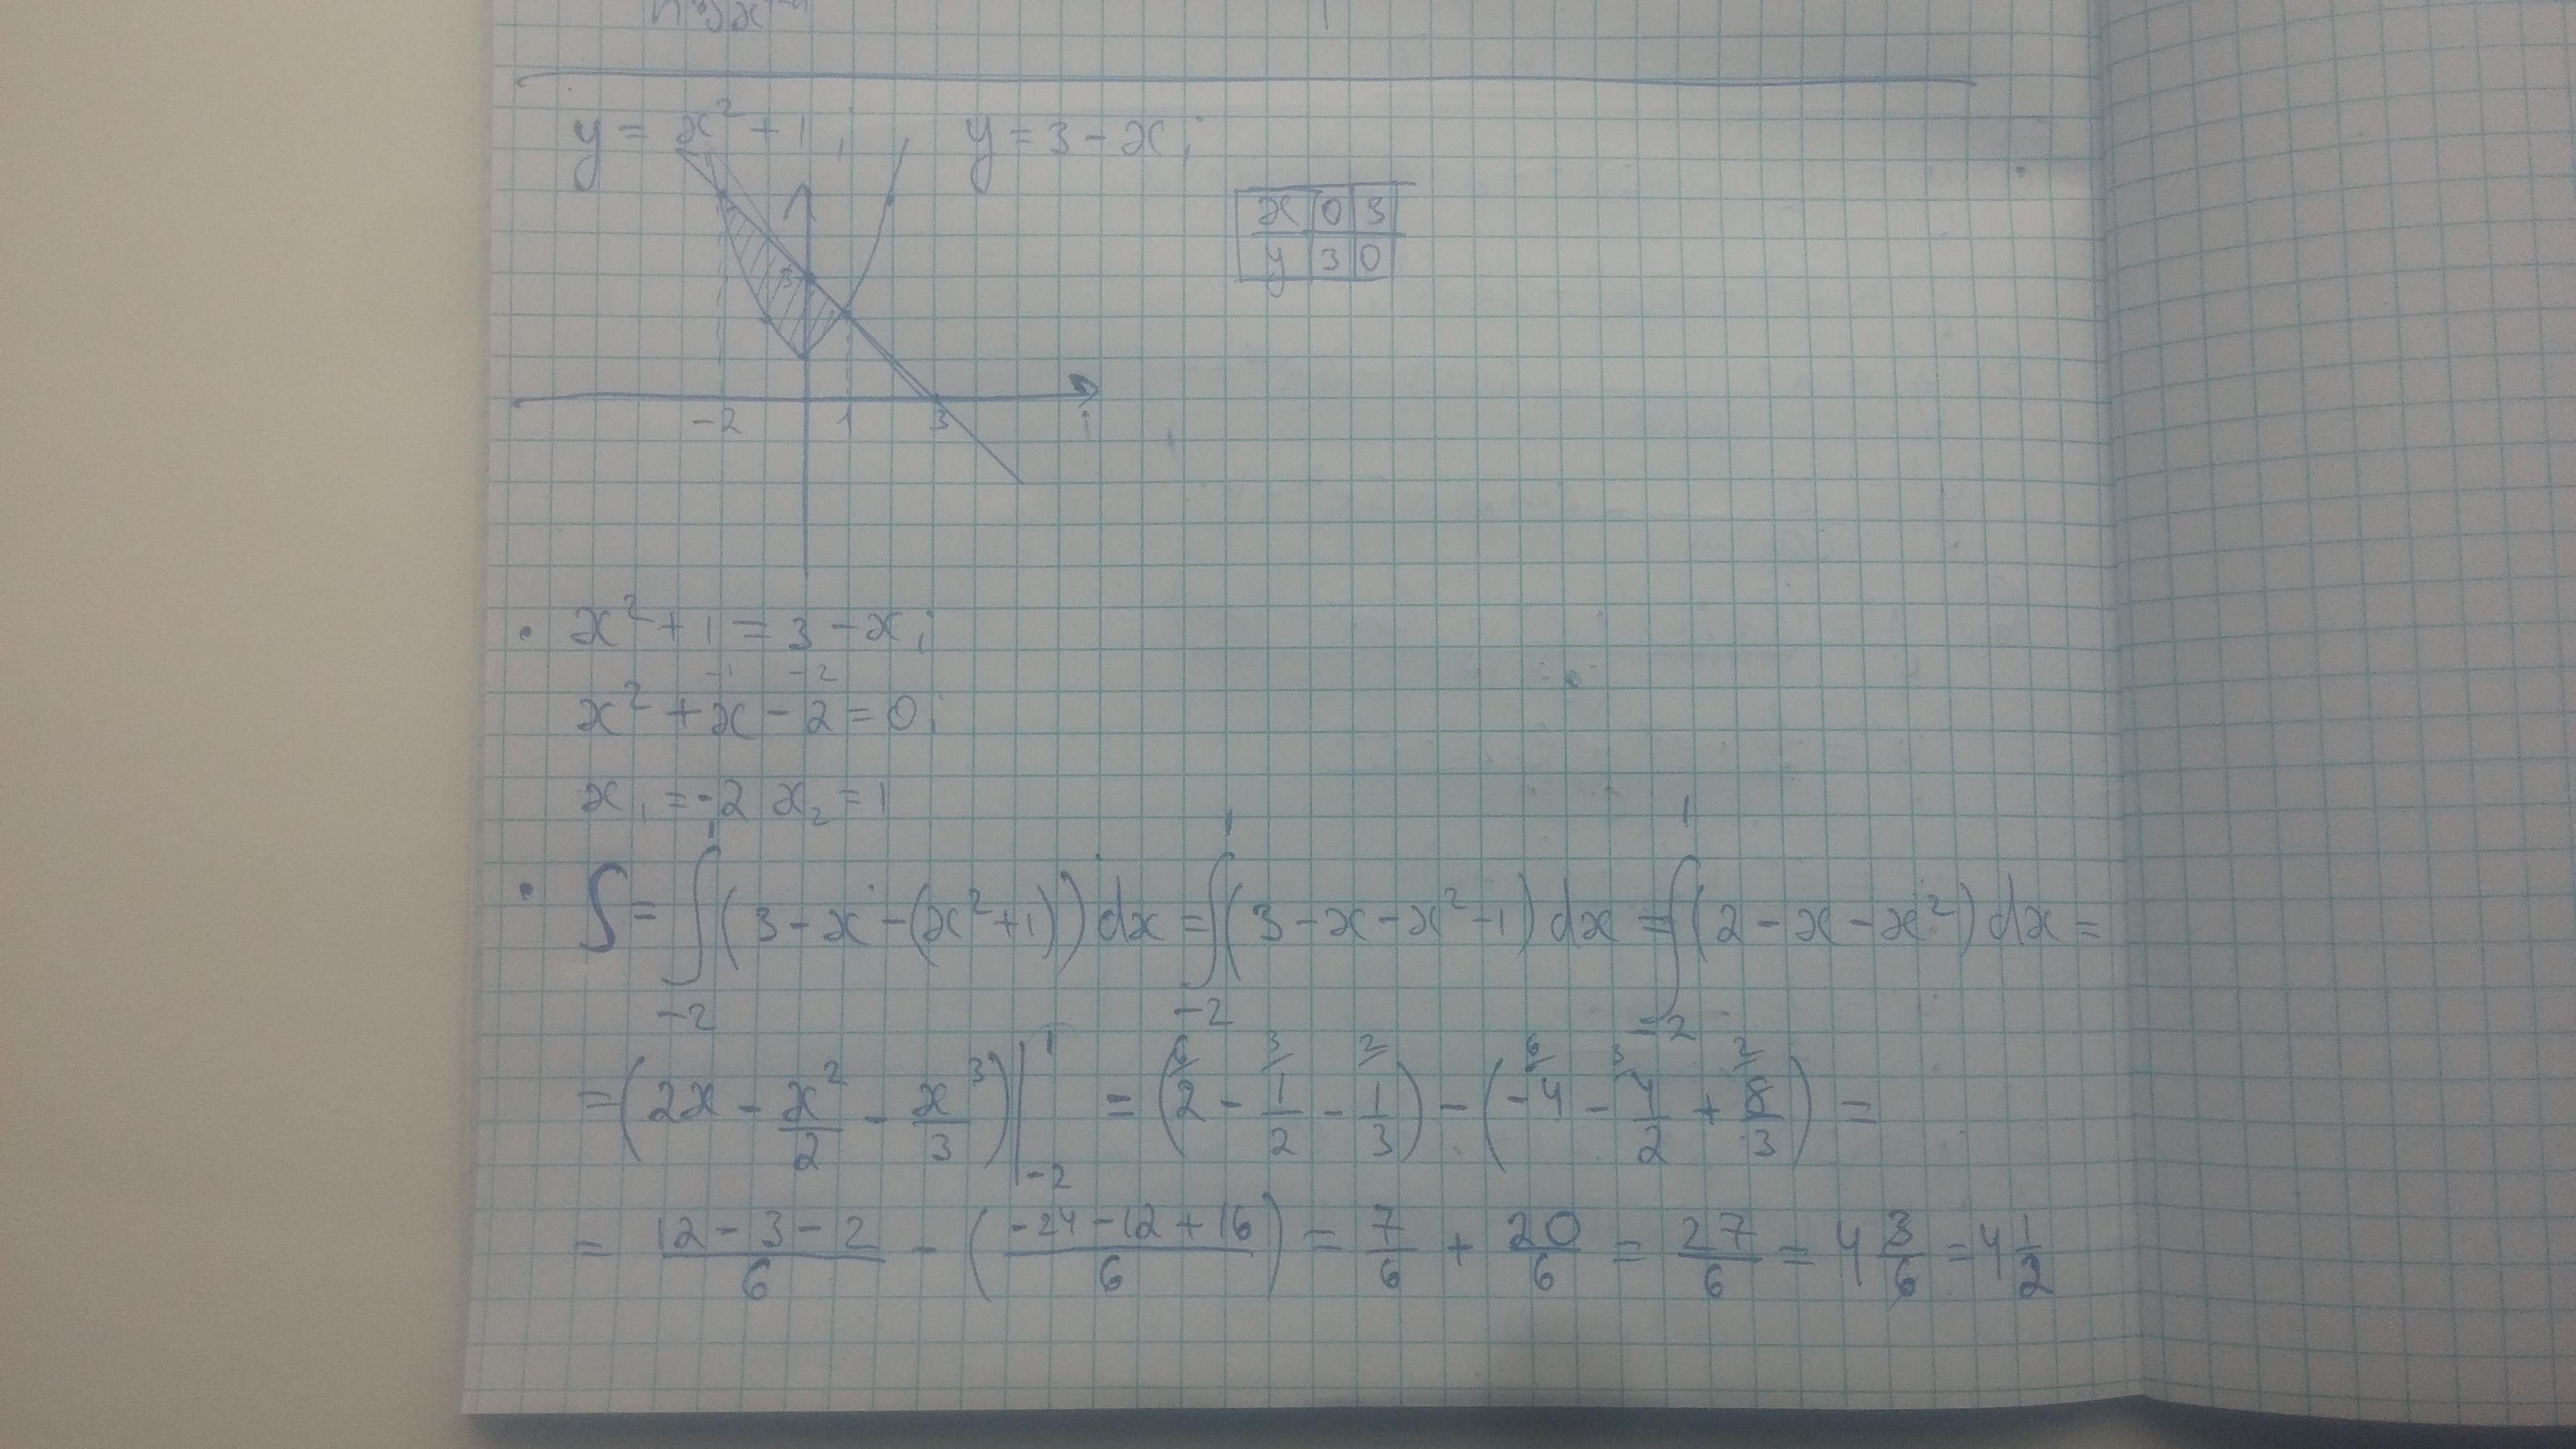 y = x² + 1; y = 3 - x;
x 0 3
y 3 0
3
-2 1 3
x² + 1 = 3 - x;
-1 -2
x² + x - 2 = 0;
x₁ = -2 x₂ = 1
S = ∫₋₂¹ (3 - x - (x² + 1)) dx = ∫₋₂¹ (3 - x - x² - 1) dx = ∫₋₂¹ (2 - x - x²) dx =
= (2x - x²/2 - x³/3) |₋₂¹ = (⁶2 - ³1/2 - ²1/3) - (⁶-4 - ³4/2 + ²8/3) =
= (12 - 3 - 2)/6 - ((-24 - 12 + 16)/6) = 7/6 + 20/6 = 27/6 = 4 3/6 = 4 1/2